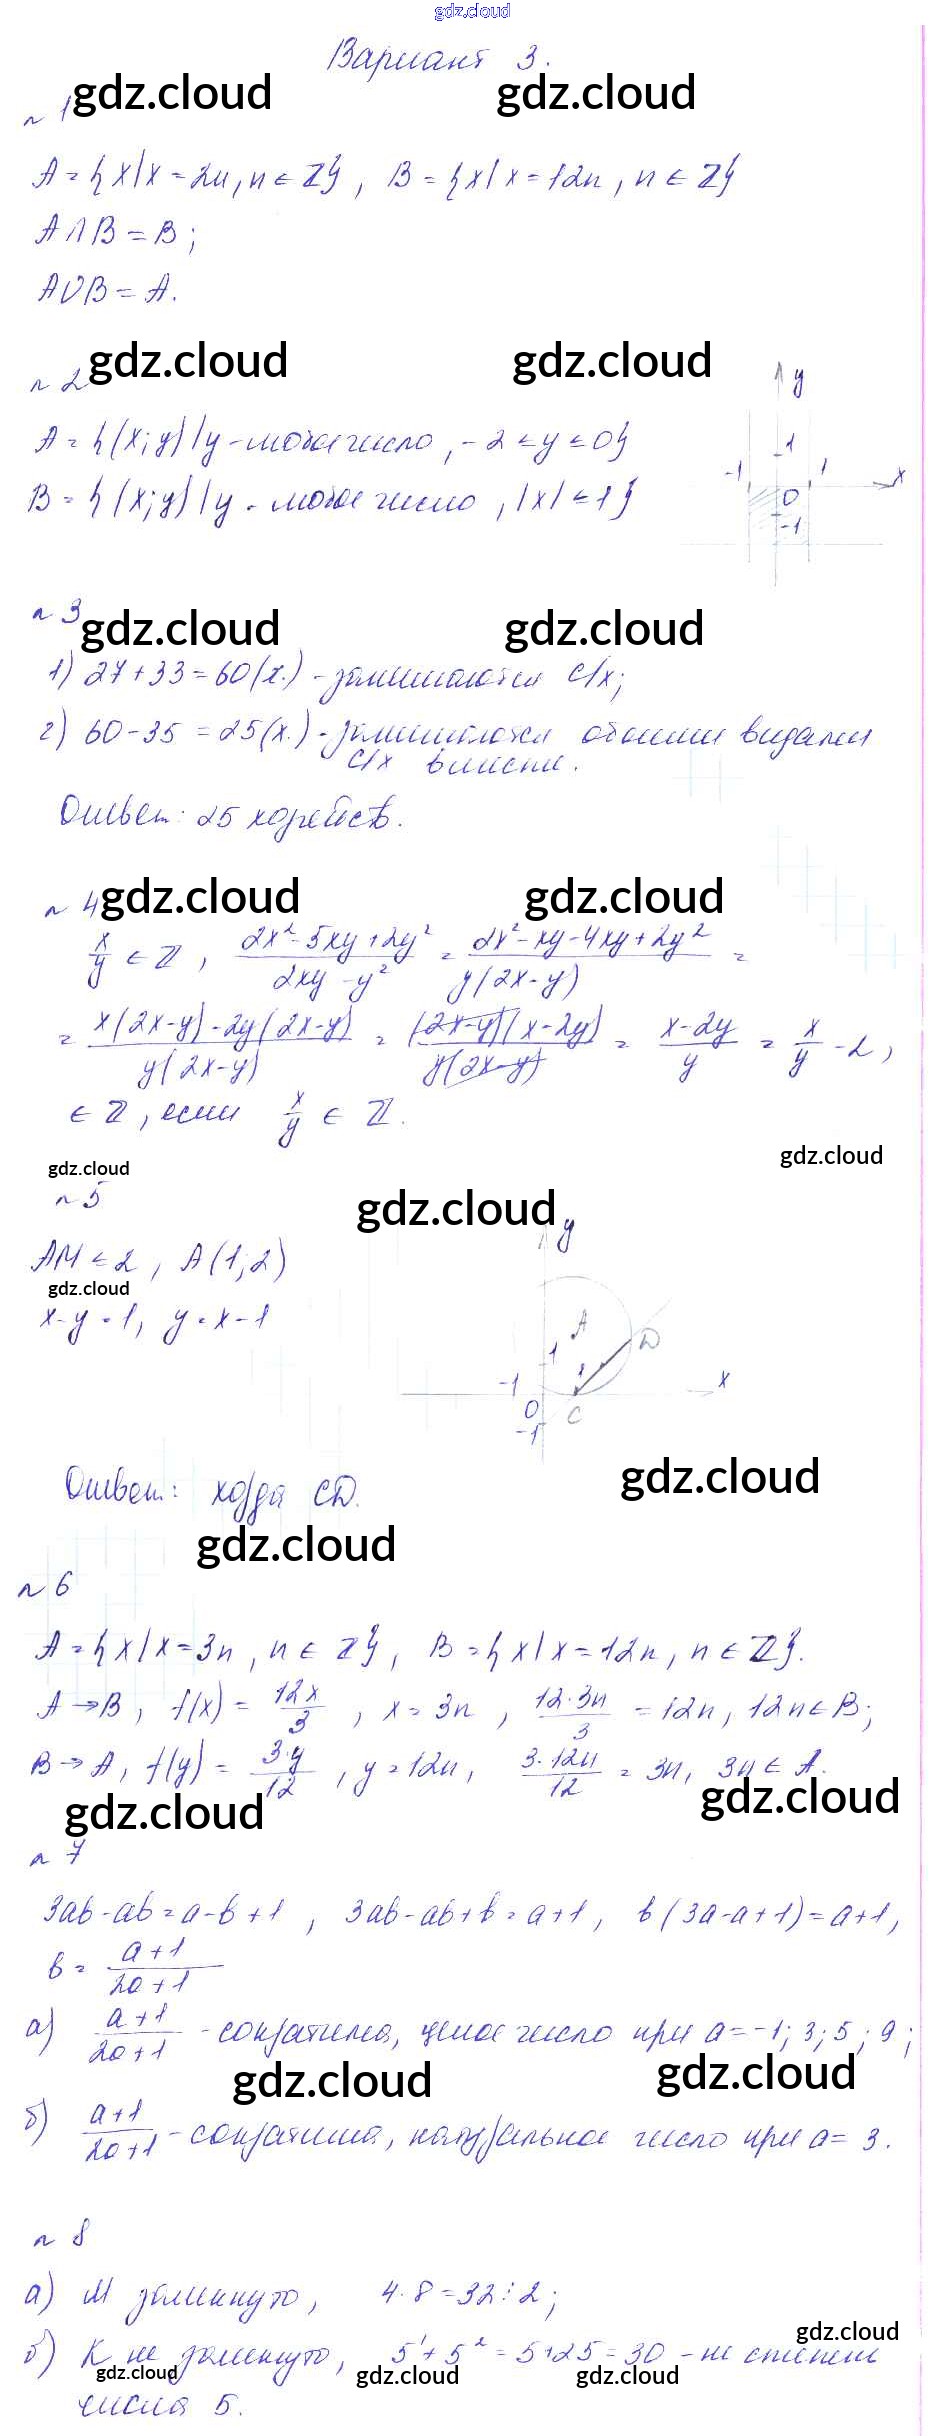 gdz.cloud
Вариант 3.
gdz.cloud gdz.cloud
n 1
A = { x | x = 2n, n ∈ Z }, B = { x | x = 12n, n ∈ Z }
A ∩ B = B;
A ∪ B = A.
gdz.cloud gdz.cloud
n 2
A = { (x; y) | y - любое число, -2 ≤ y ≤ 0 }
B = { (x; y) | y - любое число, |x| ≤ 1 }
y
1
-1 1 x
0
-1
n 3
gdz.cloud gdz.cloud
1) 27 + 33 = 60 (х.) - занимаются с/х;
2) 60 - 35 = 25 (х.) - занимаются обоими видами
с/х вместе.
Ответ: 25 хозяйств.
gdz.cloud gdz.cloud
n 4
x/y ∈ Z, (2x² - 5xy + 2y²)/(2xy - y²) = (2x² - xy - 4xy + 2y²)/(y(2x - y)) =
= (x(2x - y) - 2y(2x - y))/(y(2x - y)) = ((2x - y)(x - 2y))/(y(2x - y)) = (x - 2y)/y = x/y - 2,
∈ Z, если x/y ∈ Z.
gdz.cloud
gdz.cloud
n 5
gdz.cloud
y
AM ≤ 2, A(1; 2)
gdz.cloud
x - y = 1, y = x - 1
A
D
1
-1 1 x
0 C
-1
Ответ: хорда CD.
gdz.cloud
gdz.cloud
n 6
A = { x | x = 3n, n ∈ Z }, B = { x | x = 12n, n ∈ Z }.
A → B, f(x) = 12x/3, x = 3n, 12·3n/3 = 12n, 12n ∈ B;
B → A, f(y) = 3·y/12, y = 12n, 3·12n/12 = 3n, 3n ∈ A.
gdz.cloud gdz.cloud
n 7
3ab - ab = a - b + 1, 3ab - ab + b = a + 1, b(3a - a + 1) = a + 1,
b = (a + 1)/(2a + 1)
а) (a + 1)/(2a + 1) - сократима, целое число при a = -1; 3; 5; 9;
gdz.cloud gdz.cloud
б) (a + 1)/(2a + 1) - сократима, натуральное число при a = 3.
n 8
а) M замкнуто, 4·8 = 32 ⋮ 2;
gdz.cloud
б) K не замкнуто, 5¹ + 5² = 5 + 25 = 30 - не степень
gdz.cloud gdz.cloud gdz.cloud
числа 5.